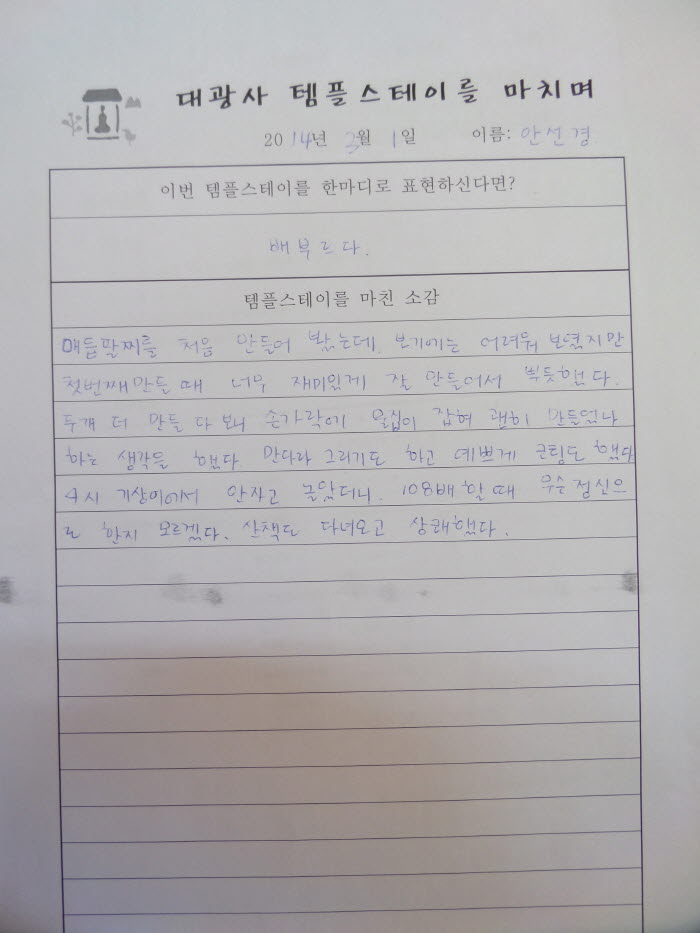 대광사 템플스테이를 마치며
2014년 3월 1일 이름: 안선경
이번 템플스테이를 한마디로 표현하신다면?
배부르다.
템플스테이를 마친 소감
매듭팔찌를 처음 만들어 봤는데, 보기에는 어려워 보였지만
첫번째 만들 때 너무 재미있게 잘 만들어서 뿌듯했다.
두개 더 만들다 보니 손가락에 물집이 잡혀 괜히 만들었나
하는 생각을 했다. 만다라 그리기도 하고 예쁘게 코팅도 했다
4시 기상이어서 안자고 놀았더니, 108배 할 때 무슨 정신으
로 한지 모르겠다. 산책도 다녀오고 상쾌했다.